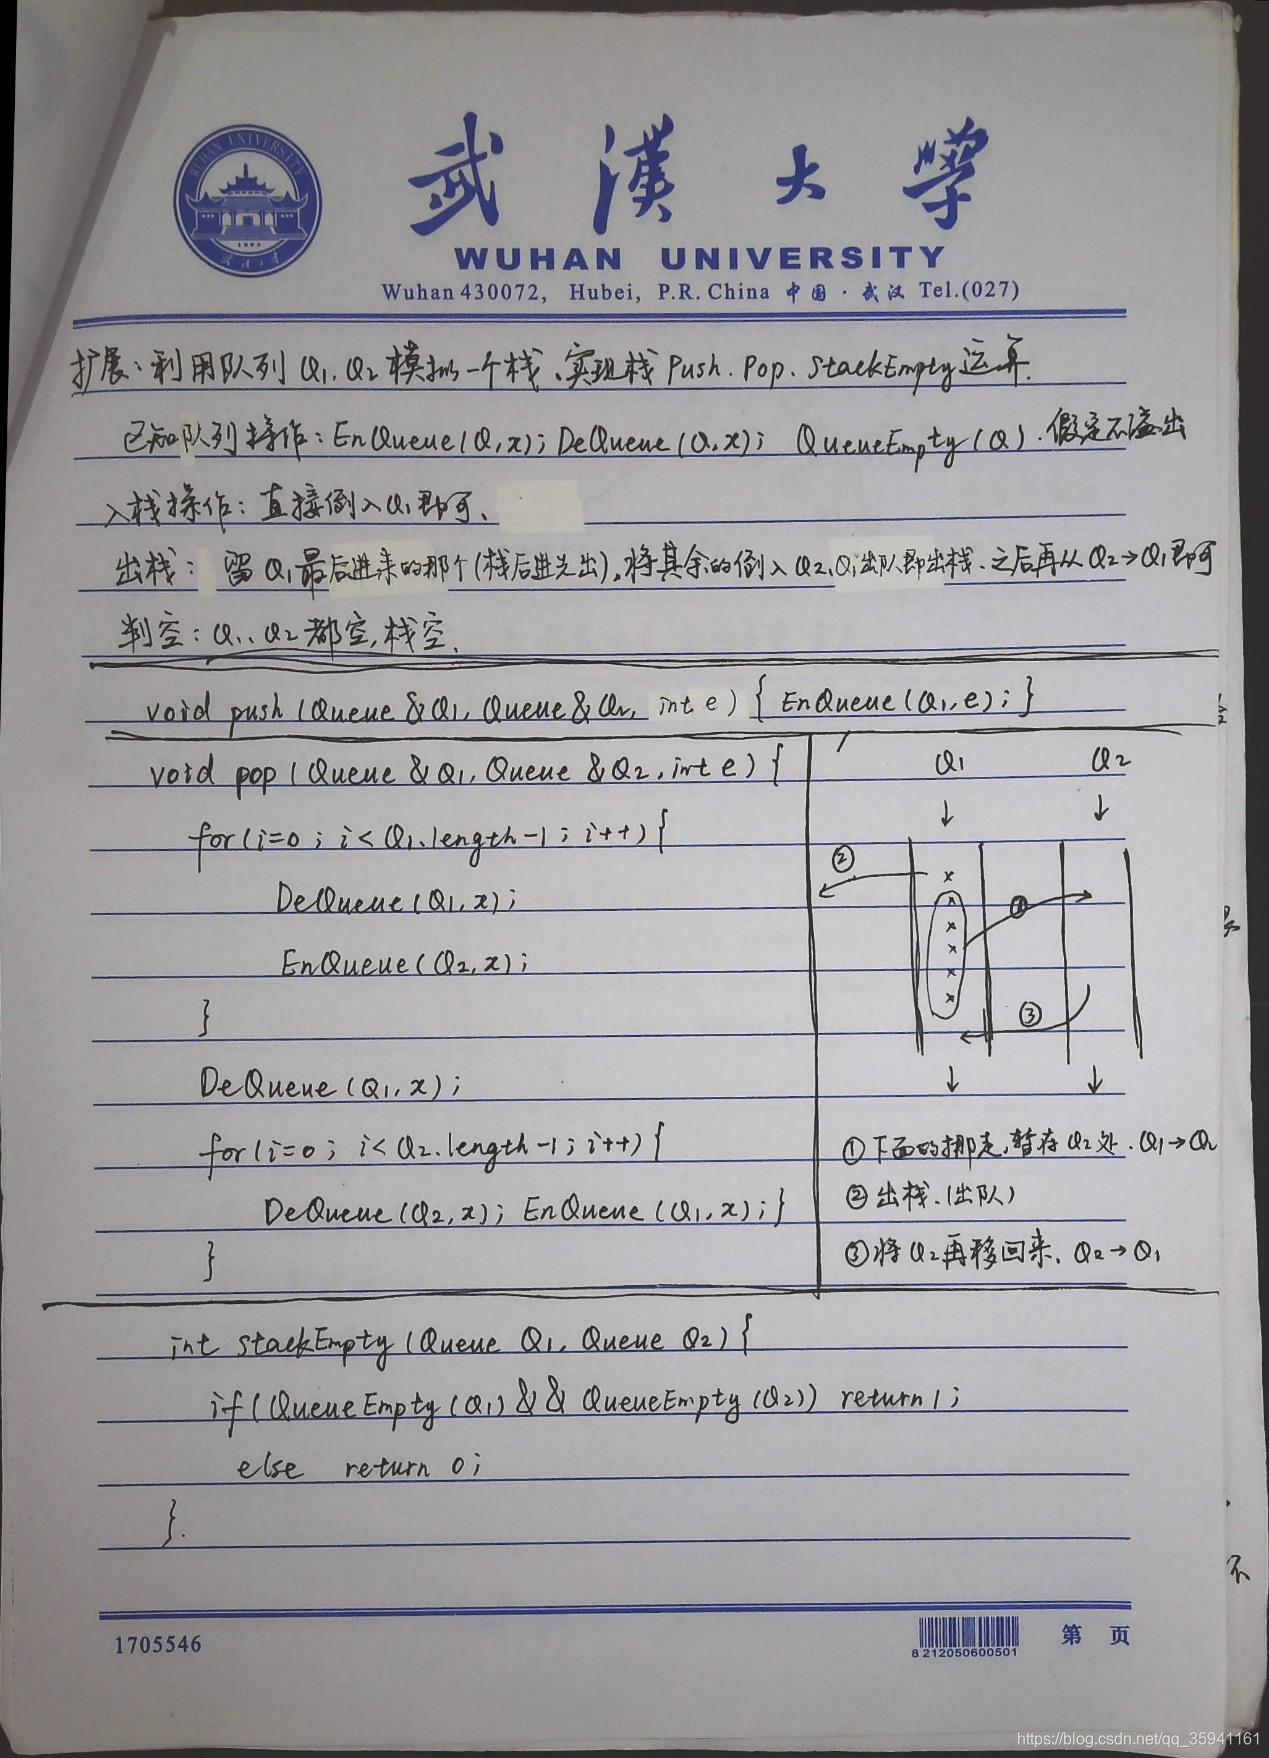 武漢大學
WUHAN UNIVERSITY
Wuhan 430072, Hubei, P.R. China 中国·武汉 Tel.(027)
扩展:利用队列Q1、Q2模拟一个栈、实现栈Push、Pop、StackEmpty运算.
已知队列操作:EnQueue(Q,x); DeQueue(Q,x); QueueEmpty(Q). 假定不溢出
入栈操作:直接倒入Q1即可、
出栈: 留Q1最后进来的那个(栈后进先出)。将其余的倒入Q2、Q1出队即出栈、之后再从Q2→Q1即可
判空:Q1、Q2都空,栈空、
void push(Queue &Q1, Queue &Q2, int e) { EnQueue(Q1,e); }
void pop(Queue &Q1, Queue &Q2, int e) {
for(i=0; i<Q1.length-1; i++) {
DeQueue(Q1,x);
EnQueue(Q2,x);
}
DeQueue(Q1,x);
for(i=0; i<Q2.length-1; i++) {
DeQueue(Q2,x); EnQueue(Q1,x); }
}
Q1 Q2
②
①
③
①下面的挪走,暂存Q2处.Q1→Q2
②出栈.(出队)
③将Q2再移回来.Q2→Q1
int stackEmpty(Queue Q1, Queue Q2) {
if(QueueEmpty(Q1) && QueueEmpty(Q2)) return 1;
else return 0;
}.
不
1705546
8 212050600501
第 页
https://blog.csdn.net/qq_35941161